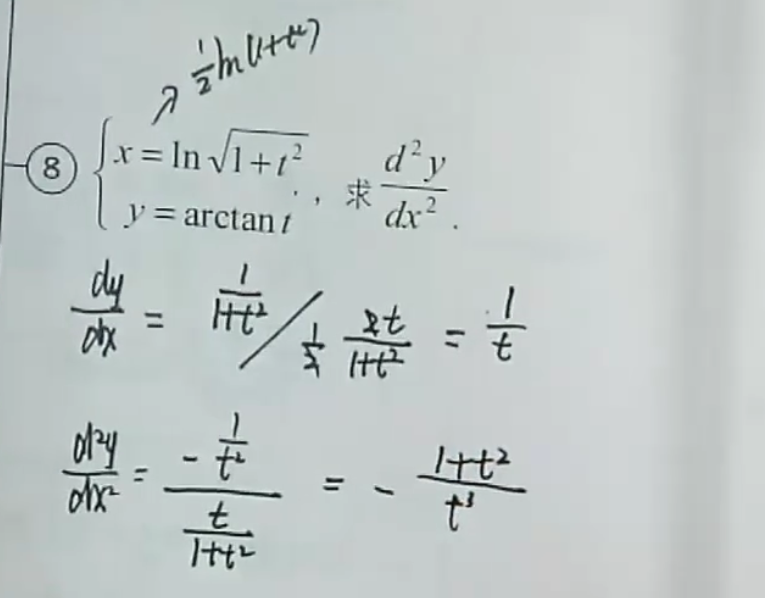 1/2 ln(1+t²)
⑧ { x = ln√(1+t²)
y = arctan t , 求 d²y/dx² .
dy/dx = 1/(1+t²) / 1/2 2t/(1+t²) = 1/t
d²y/dx² = (-1/t²)/(t/(1+t²)) = - (1+t²)/t³